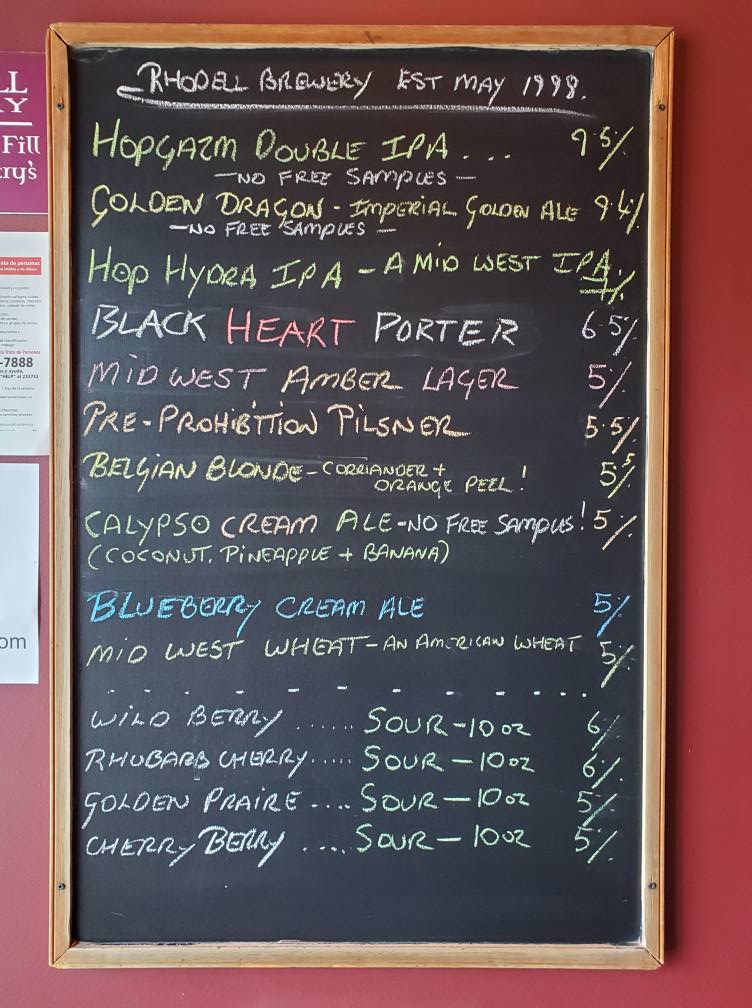 LL
RY
Fill
ery's
rata de personas
-7888
om
RHODELL BREWERY EST MAY 1998.
HOPGAZM DOUBLE IPA ... 9.5%
—NO FREE SAMPLES—
GOLDEN DRAGON - IMPERIAL GOLDEN ALE 9.4%
—NO FREE SAMPLES—
HOP HYDRA IPA - A MID WEST IPA
BLACK HEART PORTER 6.5%
MID WEST AMBER LAGER 5%
PRE-PROHIBITION PILSNER 5.5%
BELGIAN BLONDE - CORRIANDER + 5.5%
ORANGE PEEL!
CALYPSO CREAM ALE - NO FREE SAMPLES! 5%
(COCONUT, PINEAPPLE + BANANA)
BLUEBERRY CREAM ALE 5%
MID WEST WHEAT - AN AMERICAN WHEAT 5%
WILD BERRY ...... SOUR - 10oz 6%
RHUBARB CHERRY ..... SOUR - 10oz 6%.
GOLDEN PRAIRE .... SOUR - 10oz 5%
CHERRY BERRY .... SOUR - 10oz 5%